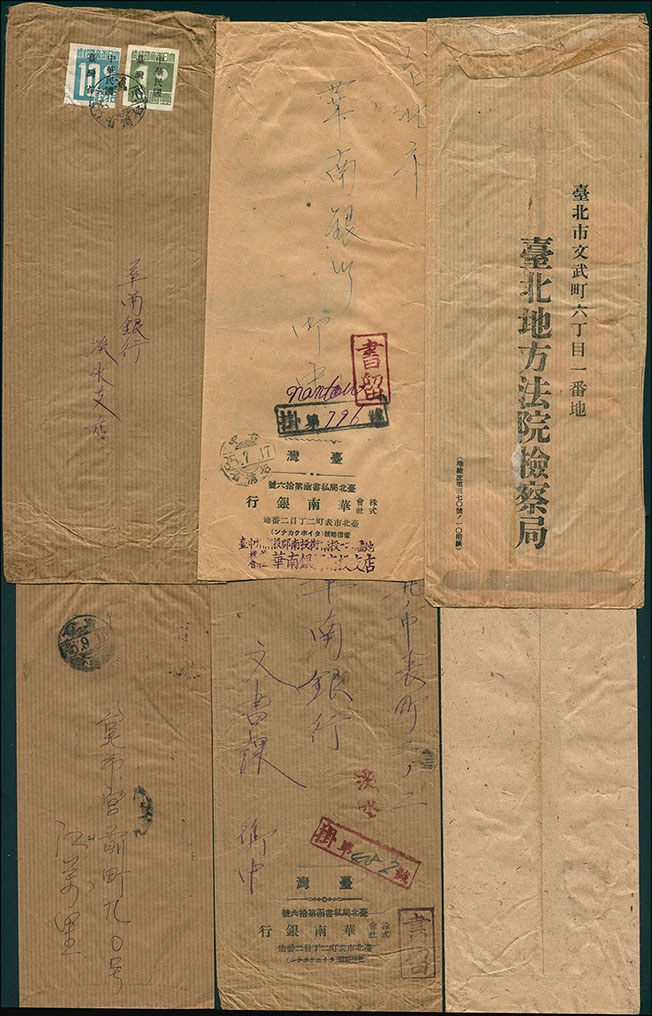 中華民國
臺灣省
10
中華民國
臺灣省
1
華南銀行
淡水支店
臺北市
華南銀行
御中
書留
nantou
掛第791號
5.7.17
臺灣
臺北局私書函第拾六號
株式會社 華南銀行
臺北市表町二丁目二番地
電信略號(タイホクカナンン)
華南銀行南投支店
臺北市文武町六丁目一番地
臺北地方法院檢察局
北市表町二ノ二
華南銀行
文書課 御中
淡水
掛第 號
臺灣
臺北局私書函第拾六號
株式會社 華南銀行
臺北市表町二丁目二番地
書留
宮前町九〇号
江萬里